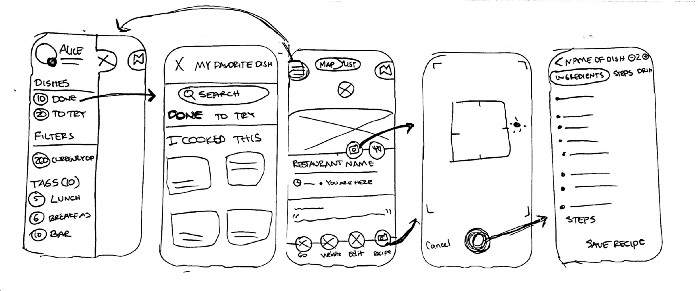 ALICE
DISHES
10 DONE
20 TO TRY
FILTERS
200
TAGS (10)
5 LUNCH
6
10 BAR
X MY FAVORITE DISH
SEARCH
DONE TO TRY
I COOKED THIS
MAP LIST
RESTAURANT NAME
YOU ARE HERE
GO WEBSITE Edit RECIPE
Cancel
< NAME OF DISH
INGREDIENTS STEPS
STEPS
SAVE RECIPE